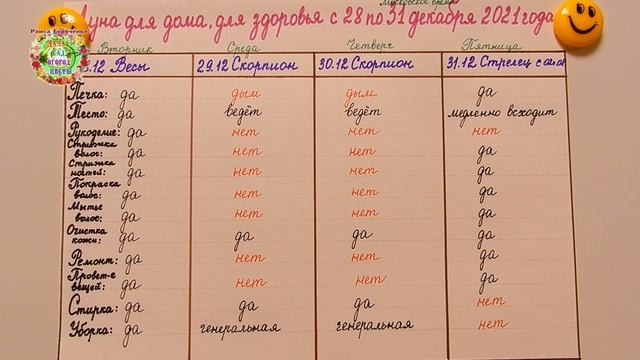 Московское время
Луна для дома, для здоровья с 28 по 31 декабря 2021 года
Раиса Горяченко
ДАЧА САД ОГОРОД ЦВЕТЫ
Вторник Среда Четверг Пятница
.12 Весы 29.12 Скорпион 30.12 Скорпион 31.12 Стрелец с
Печка: да дым дым да
Тесто: да ведёт ведёт медленно всходит
Рукоделие: да нет нет нет
Стрижка волос: да нет нет да
Стрижка ногтей: да нет нет да
Покраска волос: да нет нет да
Мытьё волос: да нет нет да
Очистка кожи: да да да да
Ремонт: да нет нет да
Провет-е вещей: да нет нет да
Стирка: да да да нет
Уборка: да генеральная генеральная нет